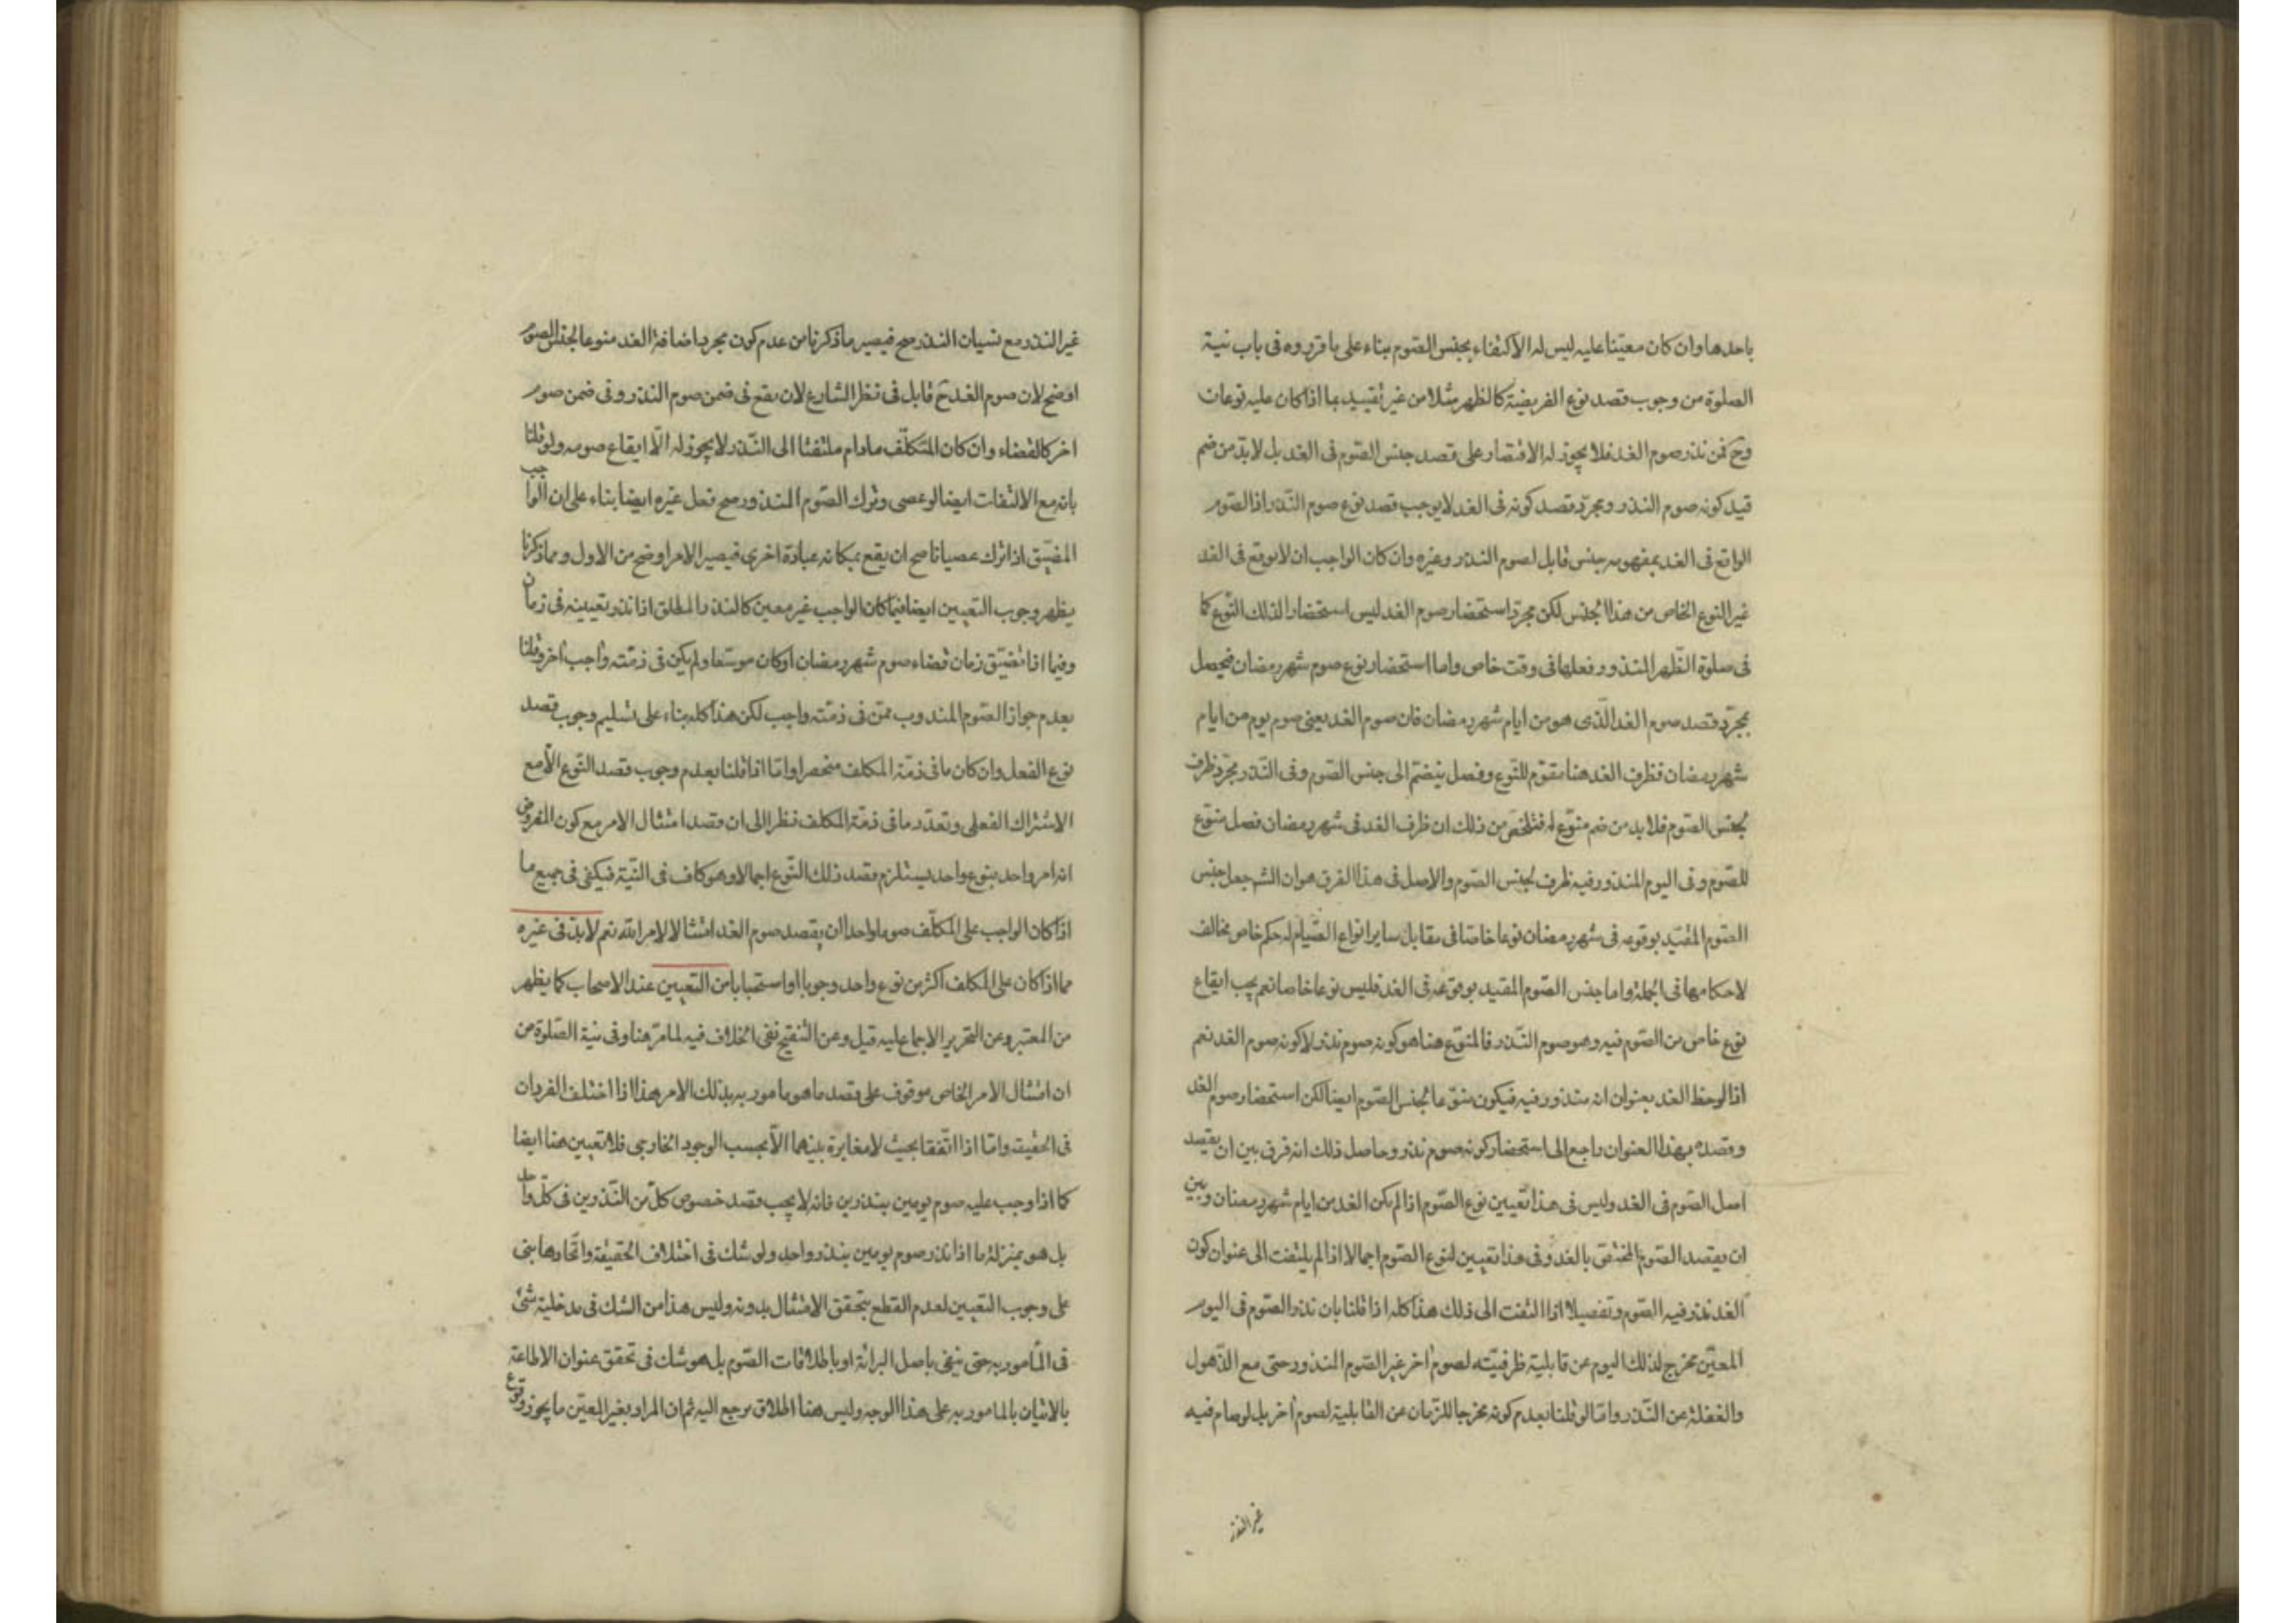 باحدها وان كان معيّنا عليه ليس له الاكتفاء بجنس الصّوم بناء على ما قرروه فى باب نيّة
الصلوة من وجوب قصد نوع الفريضة كالظهر مثلا من غير تقييد بما اذا كان عليه نوعان
وح فمن نذر صوم الغد فلا يجوز له الاقتصار على قصد جنس الصّوم فى الغد بل لابدّ من ضم
قيد كونه صوم النذر ومجرّد قصد كونه فى الغد لا يوجب قصد نوع صوم النّذر اذا لصّوم
الواقع فى الغد بمفهومه جنس قابل لصوم النذر وغيره وان كان الواجب ان لا يوقع فى الغد
غير النوع الخاص من هذا الجنس لكن مجرّد استحضار صوم الغد ليس استحضارا لذلك النّوع كما
فى صلوة الظّهر المنذور فعلها فى وقت خاص واما استحضار نوع صوم شهر رمضان فيحصل
بمجرّد قصد صوم الغد الّذى هو من ايام شهر رمضان فان صوم الغد يعنى صوم يوم من ايام
شهر رمضان فظرف الغد هنا مقوّم للنّوع وفصل ينضمّ الى جنس الصّوم وفى النّذر مجرّد ظرف
لجنس الصّوم فلا بد من ضم منوّع له فتلخّص من ذلك ان ظرف الغد فى شهر رمضان فصل منوّع
للصّوم وفى اليوم المنذور فيه ظرف لجنس الصّوم والاصل فى هذا الفرق هو ان الشم جعل جنس
الصّوم المقيّد بوقوعه فى شهر رمضان نوعا خاصّا فى مقابل ساير انواع الصّيام له حكم خاص مخالف
لاحكامها فى الجملة واما جنس الصّوم المقيد بوقوعه فى الغد فليس نوعا خاصا نعم يجب ايقاع
نوع خاص من الصّوم فيه وهو صوم النّذر فالمنوّع هنا هو كونه صوم نذر لا كونه صوم الغد نعم
اذا لوحظ الغد بعنوان انه منذور فيه فيكون منوّعا لجنس الصّوم ايضا لكن استحضار صوم الغد
وقصده بهذا العنوان راجع الى استحضار كونه صوم نذر وحاصل ذلك انه فرق بين ان يقصد
اصل الصّوم فى الغد وليس فى هذا تعيين نوع الصّوم اذا لم يكن الغد من ايام شهر رمضان وبين
ان يقصد الصّوم المختصّ بالغد وفى هذا تعيين لنوع الصّوم اجمالا اذا لم يلتفت الى عنوان كون
الغد نذر فيه الصّوم وتفصيلا اذا التفت الى ذلك هذا كله اذا قلنا بان نذر الصّوم فى اليوم
المعيّن مخرج لذلك اليوم عن قابلية ظرفيّته لصوم اخر غير الصّوم المنذور حتى مع الذّهول
والغفلة عن النّذر وامّا لو قلنا بعدم كونه مخرجا للزّمان عن القابلية لصوم اخر بل لو صام فيه
غير النذر
غير النذر مع نسيان النذر صح فيصير ما ذكرنا من عدم كون مجرد اضافة الغد منوعا لجنس الصوم
اوضح لان صوم الغد ح قابل فى نظر الشارع لان يقع فى ضمن صوم النذر وفى ضمن صوم
اخر كالقضاء وان كان المتكلّف مادام ملتفتا الى النّذر لا يجوز له الّا ايقاع صومه ولو قلنا
بانه مع الالتفات ايضا لو عصى وترك الصّوم المنذور صح فعل غيره ايضا بناء على ان الواجب
المضيّق اذا ترك عصيانا صح ان يقع بمكانه عبادة اخرى فيصير الامر اوضح من الاول ومما ذكرنا
يظهر وجوب التعيين ايضا فيما كان الواجب غير معين كالنذر المطلق اذا نذر تعيينه فى زمان
وفيما اذا تضيّق زمان قضاء صوم شهر رمضان او كان موسّعا ولم يكن فى ذمّته واجب اخر وقلنا
بعدم جواز الصّوم المندوب ممّن فى ذمّته واجب لكن هذا كله بناء على تسليم وجوب قصد
نوع الفعل وان كان ما فى ذمّة المكلف منحصرا وامّا اذا قلنا بعدم وجوب قصد النّوع الّا مع
الاشتراك الفعلى وتعدّد ما فى ذمّة المكلف نظرا الى ان قصد امتثال الامر مع كون المفروض
انه امر واحد بنوع واحد يستلزم قصد ذلك النّوع اجمالا وهو كاف فى النّيّة فيكفى فى جميع ما
اذا كان الواجب على المكلّف صوما واحدا ان يقصد صوم الغد امتثالا لامر الله نعم لابدّ فى غيره
مما اذا كان على المكلف اكثر من نوع واحد وجوبا او استحبابا من التعيين عند الاصحاب كما يظهر
من المعتبر وعن التحرير الاجماع عليه قيل وعن التنقيح نفى الخلاف فيه لما مرّ هنا وفى نية الصّلوة من
ان امتثال الامر الخاص موقوف على قصد ما هو مامور به بذلك الامر هذا اذا اختلف الفردان
فى الحقيقة وامّا اذا اتّفقا بحيث لا مغايرة بينهما الّا بحسب الوجود الخارجى فلا تعيين هنا ايضا
كما اذا وجب عليه صوم يومين بنذرين فانه لا يجب قصد خصوص كلّ من النّذرين فى كلّ واحد
بل هو بمنزلة ما اذا نذر صوم يومين بنذر واحد ولو شك فى اختلاف الحقيقة واتّحادها بنى
على وجوب التعيين لعدم القطع بتحقق الامتثال بدونه وليس هذا من الشك فى مدخلية شئ
فى المأمور به حتى ينفى باصل البرائة او باطلاقات الصّوم بل هو شك فى تحقق عنوان الاطاعة
بالاتيان بالمامور به على هذا الوجه وليس هنا اطلاق يرجع اليه ثم ان المراد بغير المعيّن ما يجوز وقوع